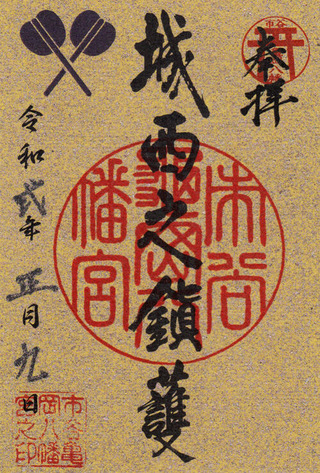 奉拝
城西之鎮護
令和弐年正月九日
市谷
市谷亀岡八幡宮
市谷亀岡八幡宮之印